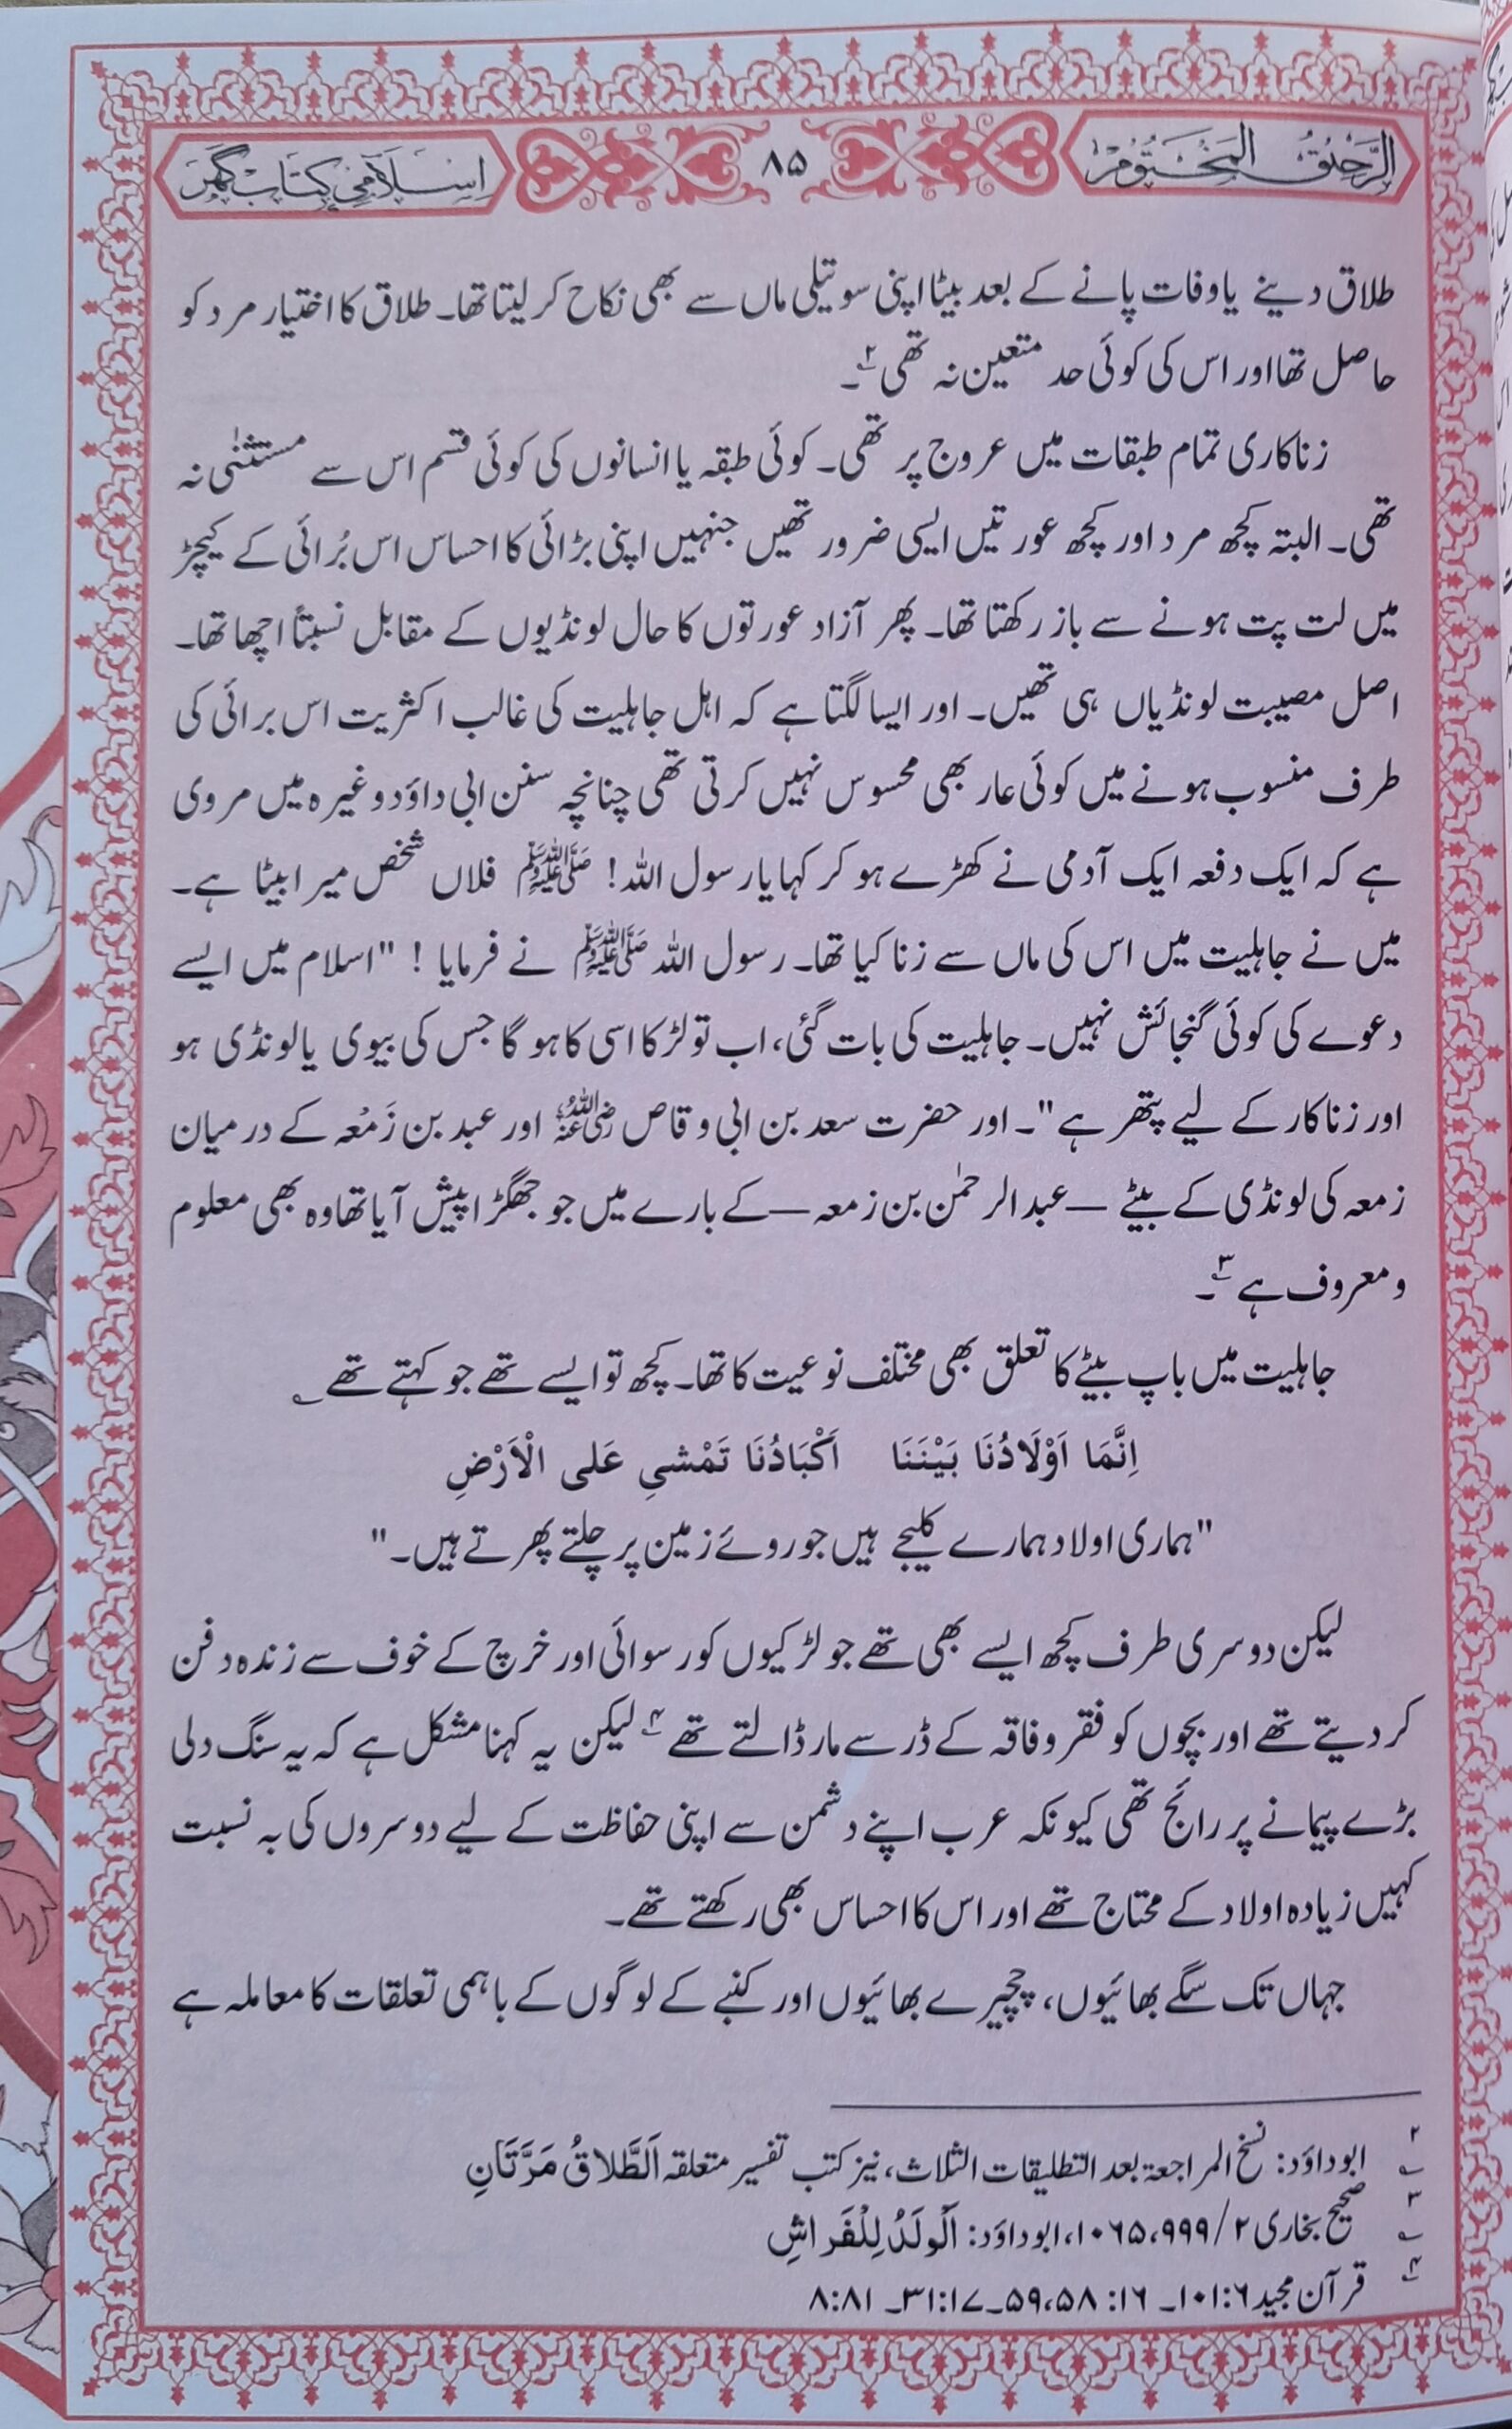 الرحیق المختوم
۸۵
اسلامی کتاب گھر
طلاق دینے یا وفات پانے کے بعد بیٹا اپنی سوتیلی ماں سے بھی نکاح کر لیتا تھا۔ طلاق کا اختیار مرد کو
حاصل تھا اور اس کی کوئی حد متعین نہ تھی ۲۔
زناکاری تمام طبقات میں عروج پر تھی۔ کوئی طبقہ یا انسانوں کی کوئی قسم اس سے مستثنٰی نہ
تھی۔ البتہ کچھ مرد اور کچھ عورتیں ایسی ضرور تھیں جنہیں اپنی بڑائی کا احساس اس بُرائی کے کیچڑ
میں لت پت ہونے سے باز رکھتا تھا۔ پھر آزاد عورتوں کا حال لونڈیوں کے مقابل نسبتاً اچھا تھا۔
اصل مصیبت لونڈیاں ہی تھیں۔ اور ایسا لگتا ہے کہ اہل جاہلیت کی غالب اکثریت اس برائی کی
طرف منسوب ہونے میں کوئی عار بھی محسوس نہیں کرتی تھی چنانچہ سنن ابی داؤد وغیرہ میں مروی
ہے کہ ایک دفعہ ایک آدمی نے کھڑے ہو کر کہا یا رسول اللہ! ﷺ فلاں شخص میرا بیٹا ہے۔
میں نے جاہلیت میں اس کی ماں سے زنا کیا تھا۔ رسول اللہ ﷺ نے فرمایا ! "اسلام میں ایسے
دعوے کی کوئی گنجائش نہیں۔ جاہلیت کی بات گئی، اب تو لڑکا اسی کا ہو گا جس کی بیوی یا لونڈی ہو
اور زناکار کے لیے پتھر ہے"۔ اور حضرت سعد بن ابی وقاص رضی اللہ عنہ اور عبد بن زَمْعہ کے درمیان
زمعہ کی لونڈی کے بیٹے — عبدالرحمٰن بن زمعہ — کے بارے میں جو جھگڑا پیش آیا تھا وہ بھی معلوم
ومعروف ہے ۳۔
جاہلیت میں باپ بیٹے کا تعلق بھی مختلف نوعیت کا تھا۔ کچھ تو ایسے تھے جو کہتے تھے ؎
اِنَّمَا اَوْلَادُنَا بَيْنَنَا اَكْبَادُنَا تَمْشِي عَلى الْاَرْضِ
"ہماری اولاد ہمارے کلیجے ہیں جو روئے زمین پر چلتے پھرتے ہیں۔"
لیکن دوسری طرف کچھ ایسے بھی تھے جو لڑکیوں کو رسوائی اور خرچ کے خوف سے زندہ دفن
کر دیتے تھے اور بچوں کو فقر و فاقہ کے ڈر سے مار ڈالتے تھے ۴ لیکن یہ کہنا مشکل ہے کہ یہ سنگ دلی
بڑے پیمانے پر رائج تھی کیونکہ عرب اپنے دشمن سے اپنی حفاظت کے لیے دوسروں کی بہ نسبت
کہیں زیادہ اولاد کے محتاج تھے اور اس کا احساس بھی رکھتے تھے۔
جہاں تک سگے بھائیوں، چچیرے بھائیوں اور کنبے کے لوگوں کے باہمی تعلقات کا معاملہ ہے
۲ ابوداؤد: نسخ المراجعۃ بعد التطلیقات الثلاث، نیز کتب تفسیر متعلقہ اَلطَّلَاقُ مَرَّتَانِ
۳ صحیح بخاری ۲/۹۹۹، ۱۰۶۵، ابوداؤد: اَلْوَلَدُ لِلْفَرَاشِ
۴ قرآن مجید ۶:۱۰۱۔ ۱۶: ۵۸، ۵۹۔ ۱۷:۳۱۔ ۸۱:۸